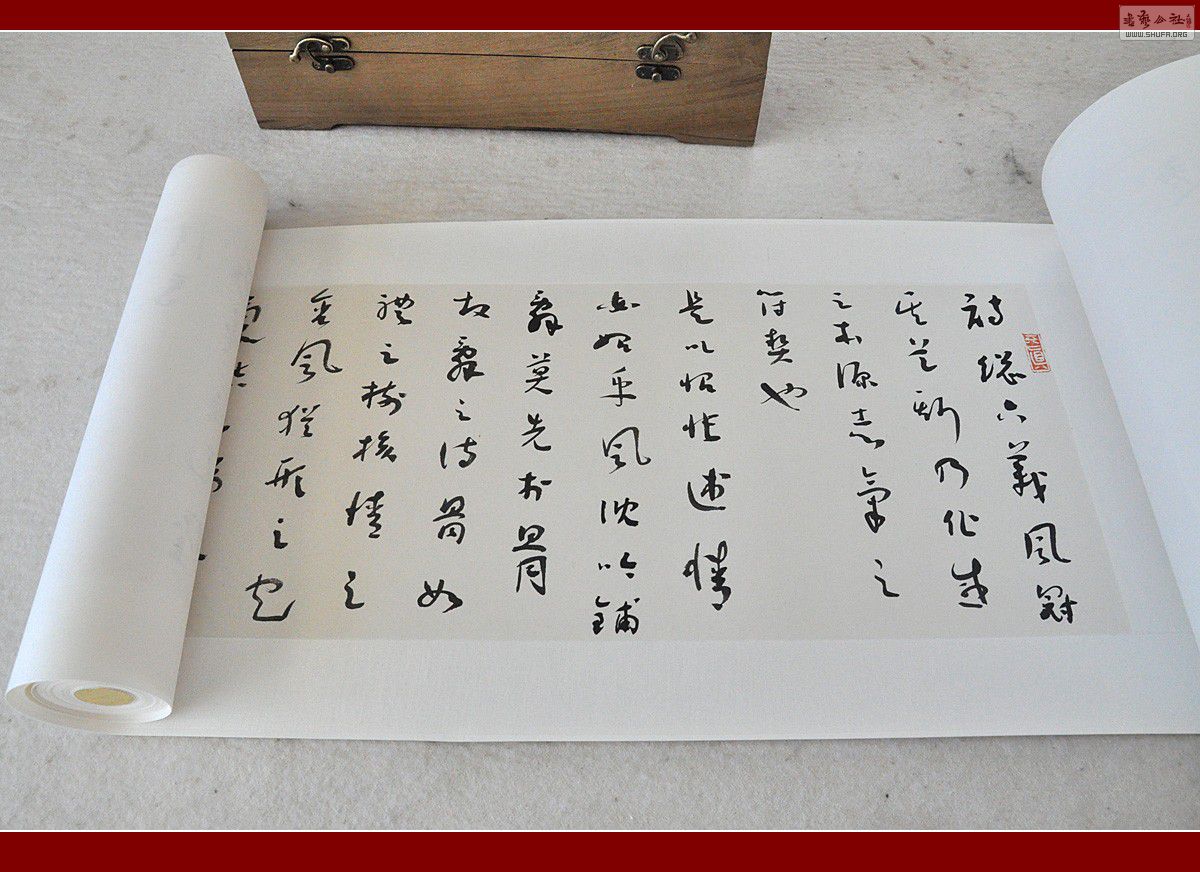 詩總六義風冠
其首斯乃化感
之本源志氣之
符契也
是以怊悵述情
必始乎風沈吟鋪
辭莫先於骨
故辭之待骨如
體之樹骸情之
含風猶形之包
WWW.SHUFA.ORG